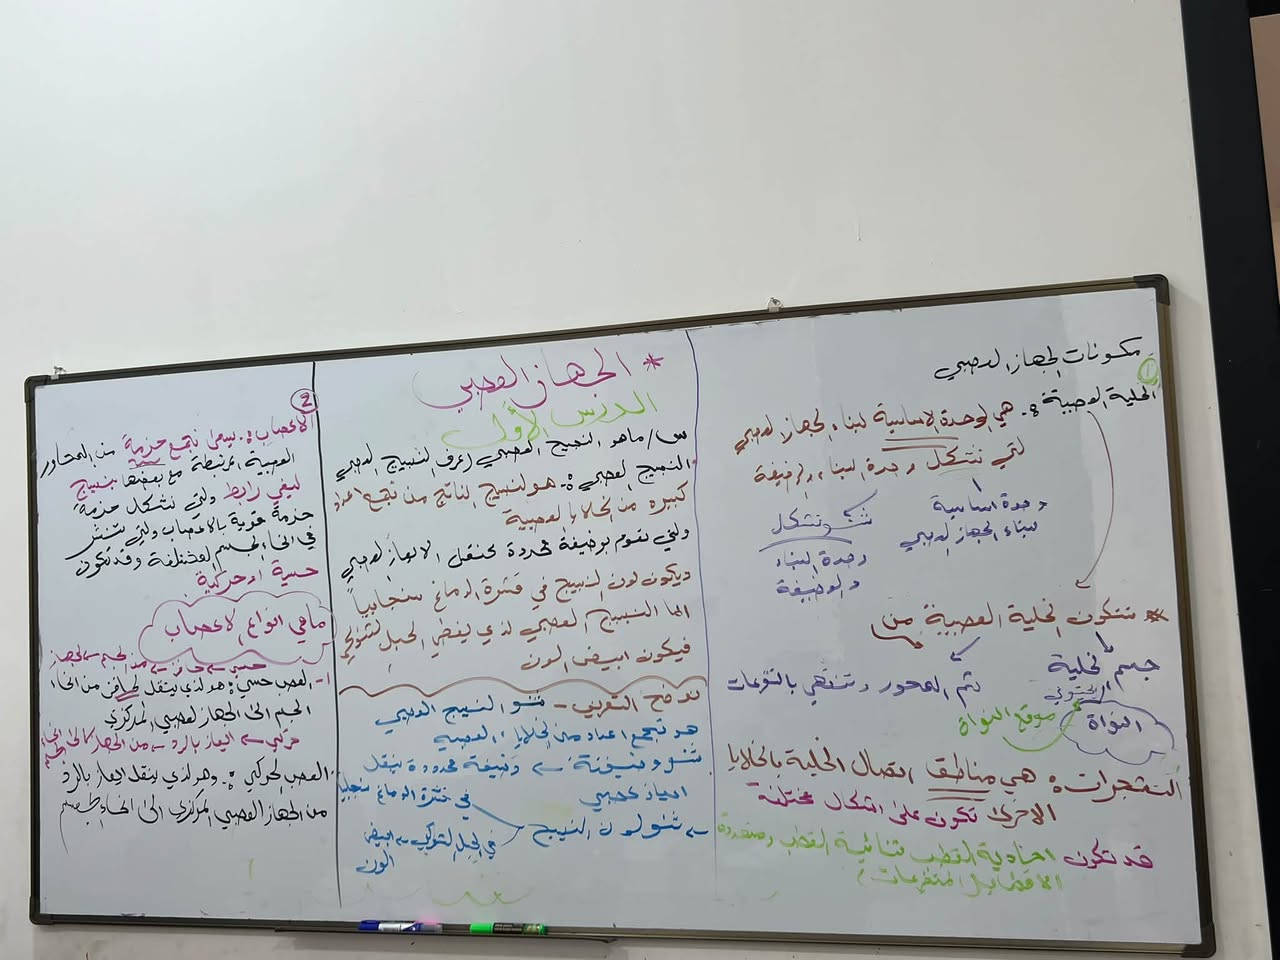 * الجهاز العصبي
الدرس الأول
س/ ماهو النسيج العصبي (عرف النسيج العصبي
النسيج العصبي :- هو النسيج الناتج من تجمع اعداد
كبيره من الخلايا العصبية
ولتي تقوم بوظيفة محدودة كنقل الايعاز العصبي
ويكون لون النسيج في قشرة الدماغ سنجابياً
اما النسيج العصبي لذي يغطي الحبل لشوكي
فيكون ابيض اللون
توضح التعريف - شنو النسيج العصبي
هو تجمع اعداد من الخلايا العصبية
شنو وضيفته ← وضيفة محدودة ينقل
ايعاز عصبي
← شنو لون النسيج
في قشرة الدماغ سنجابي
في الحبل الشوكي ← ابيض
الون
مكونات الجهاز العصبي
1
الخلية العصبية :- هي الوحدة الاساسية لبناء الجهاز العصبي
لتي تتشكل وحدة البناء والوظيفة
وحدة اساسية
لبناء الجهاز العصبي
شنو تشكل
وحدة البناء
والوضيفة
** تتكون لخلية العصبية من
جسم لخلية
المحتوي
النواة
موقع النواة
ثم المحور وتنتهي بالتفرعات
التشجرات : هي مناطق اتصال الخلية بالخلايا
الاخرى تكون على اشكال مختلفة
قد تكون احادية القطب ثنائية القطب ومتعددة
الاقطاب المتفرعات
2
الاعصاب :- تجمع حزمة من المحاور
العصبية المرتبطة مع بعضها بنسيج
ليفي رابط ولتي تتشكل حزمة
حزمة قوية بالاعصاب ولتي تنتشر
في انحا الجسم لمختلفة وقد تكون
حسية او حركية
ماهي انواع لاعصاب
حسي ← حافز ← من الجسم ← الجهاز
1- العصب حسي : هو لذي ينقل لحافز من انحاء
الجسم الى الجهاز لعصبي المركزي
حركي ← ايعاز بالرد ← من الجهاز
العصب لحركي :- وهو لذي ينقل ايعاز بالرد
من الجهاز العصبي المركزي الى انحاء الجسم